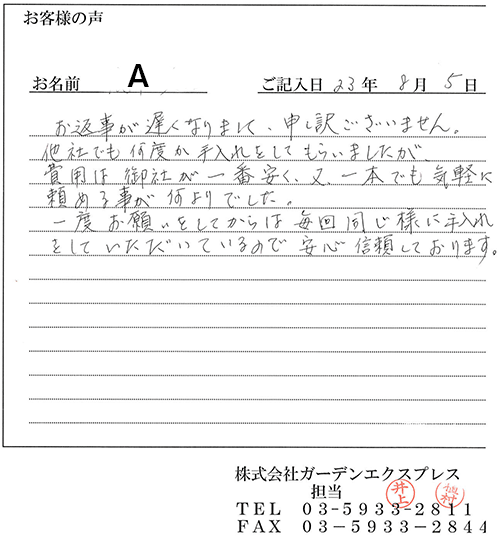 お客様の声
お名前 A ご記入日 23年 8月 5日
お返事が遅くなりまして、申し訳ございません。
他社でも何度か手入れをしてもらいましたが、
費用は御社が一番安く、又、一本でも気軽に
頼める事が何よりでした。
一度お願いをしてからは毎回同じ様に手入れ
をしていただいているので安心信頼しております。
株式会社ガーデンエクスプレス
担当 井上 植村
TEL 03-5933-2811
FAX 03-5933-2844